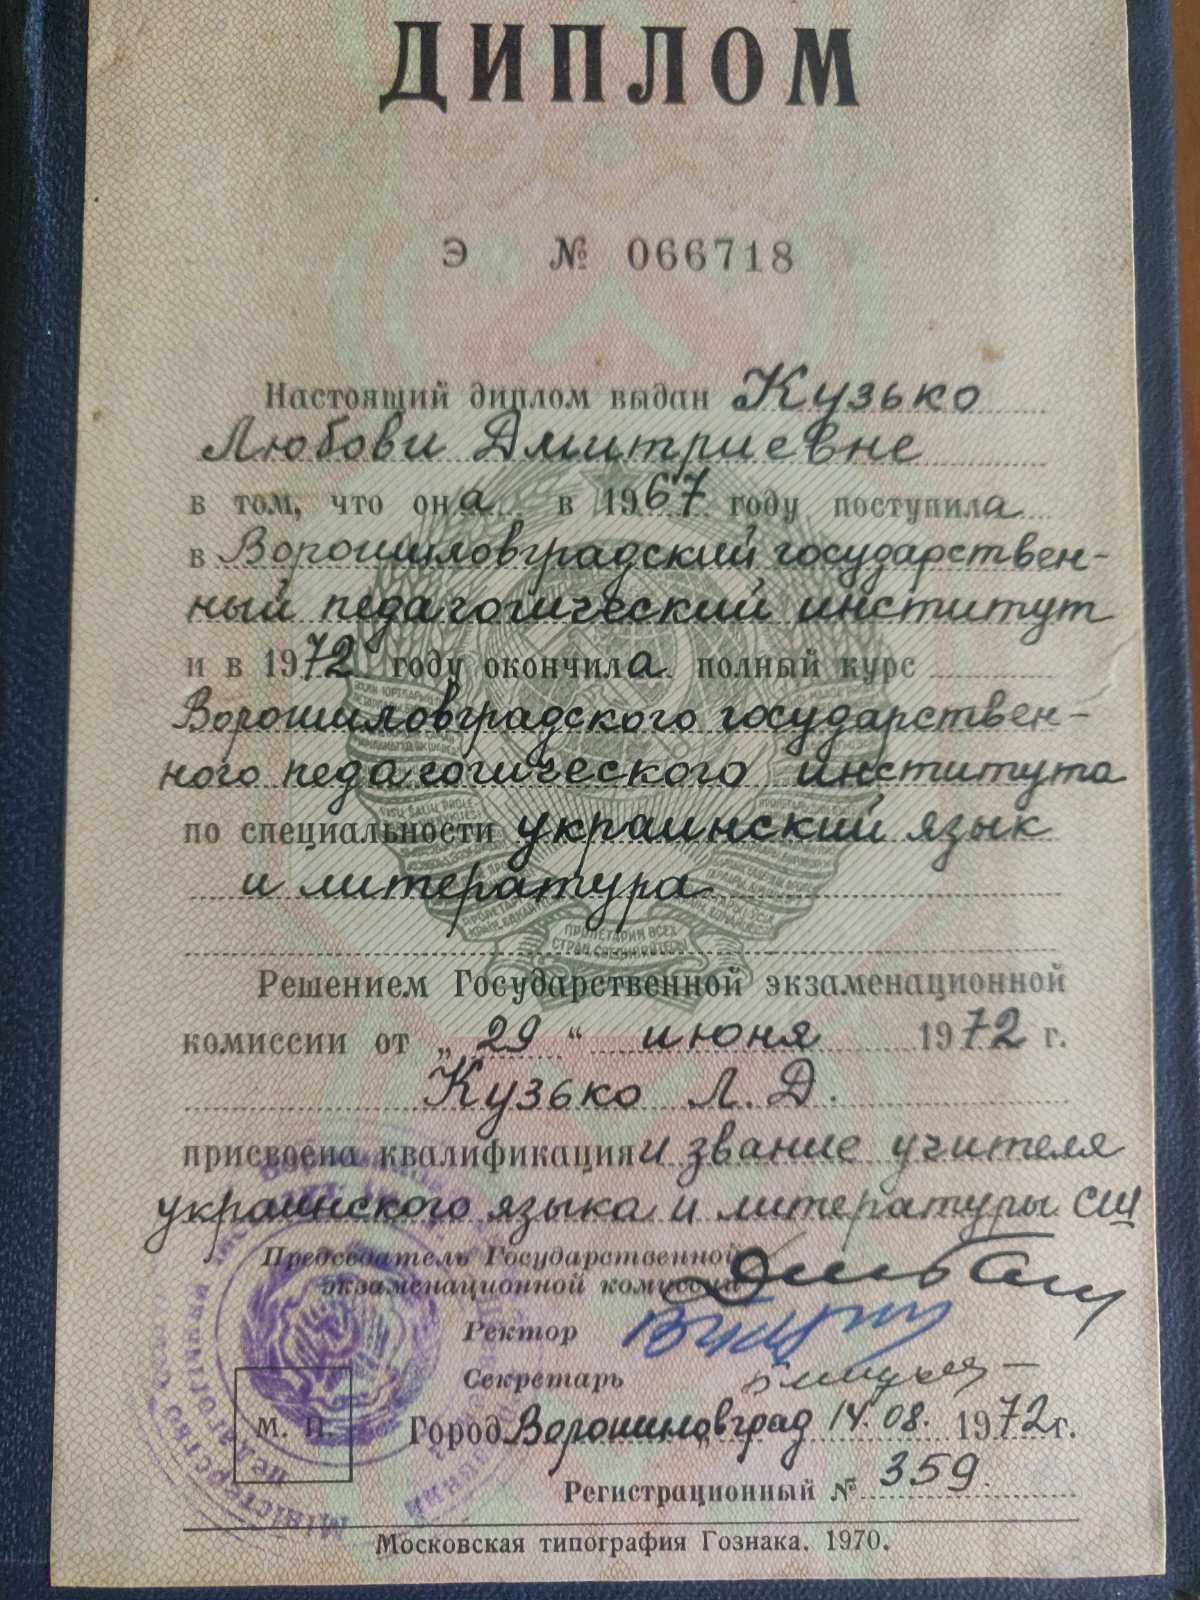 ДИПЛОМ
Э № 066718
Настоящий диплом выдан Кузько
Любови Дмитриевне
в том, что она в 1967 году поступила
в Ворошиловградский государствен-
ный педагогический институт
и в 1972 году окончила полный курс
Ворошиловградского государствен-
ного педагогического института
по специальности украинский язык
и литература
ПРОЛЕТАРИИ ВСЕХ
СТРАН, СОЕДИНЯЙТЕСЬ!
Решением Государственной экзаменационной
комиссии от „29“ июня 1972 г.
Кузько Л. Д.
присвоена квалификация и звание учителя
украинского языка и литературы СШ
Председатель Государственной
экзаменационной комиссии
Ректор
Секретарь
М. П.
Город Ворошиловград 14. 08. 1972 г.
Регистрационный № 359.
Московская типография Гознака. 1970.